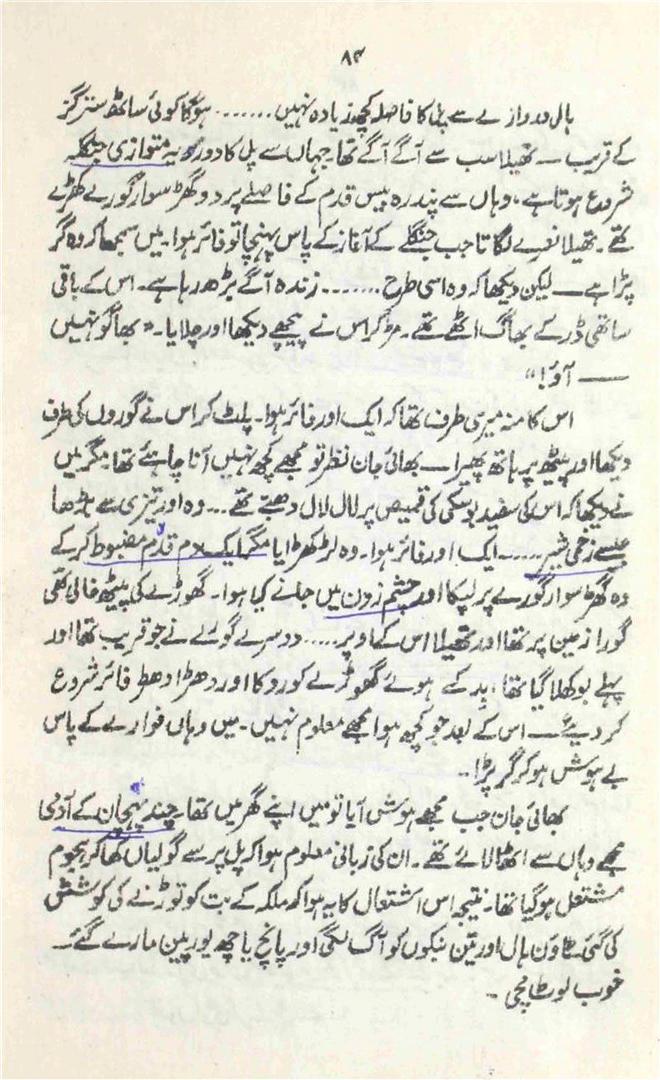 ۸۴
ہال دروازے سے پل کا فاصلہ کچھ زیادہ نہیں ....... ہوگا کوئی ساٹھ ستر گز
کے قریب — تھیلا سب سے آگے آگے تھا۔ جہاں سے پل کا دورویہ متوازی جنگلہ
شروع ہوتا ہے، وہاں سے پندرہ بیس قدم کے فاصلے پر دو گھڑ سوار گورے کھڑے
تھے۔ تھیلا نعرے لگاتا جب جنگلے کے آغاز کے پاس پہنچا تو فائر ہوا۔ میں سمجھا کہ وہ گر
پڑا ہے — لیکن دیکھا کہ وہ اسی طرح ....... زندہ آگے بڑھ رہا ہے۔ اس کے باقی
ساتھی ڈر کے بھاگ اٹھے تھے۔ مڑ کر اس نے پیچھے دیکھا اور چلایا۔ "بھاگو نہیں
— آؤ!"
اس کا منہ میری طرف تھا کہ ایک اور فائر ہوا۔ پلٹ کر اس نے گوروں کی طرف
دیکھا اور پیٹھ پر ہاتھ پھیرا — بھائی جان نظر تو مجھے کچھ نہیں آنا چاہئے تھا۔ مگر میں
نے دیکھا کہ اس کی سفید بوسکی کی قمیص پر لال لال دھبے تھے ... وہ اور تیزی سے بڑھا
جیسے زخمی شیر ..... ایک اور فائر ہوا۔ وہ لڑکھڑایا مگر ایک دم قدم مضبوط کر کے
وہ گھڑ سوار گورے پر لپکا اور چشم زدن میں جانے کیا ہوا۔ گھوڑے کی پیٹھ خالی تھی
گورا زمین پر تھا اور تھیلا اس کے اوپر ..... دوسرے گورے نے جو قریب تھا اور
پہلے بوکھلا گیا تھا، بدکے ہوئے گھوڑے کو روکا اور دھڑا دھڑ فائر شروع
کر دیئے — اس کے بعد جو کچھ ہوا مجھے معلوم نہیں۔ میں وہاں فوارے کے پاس
بے ہوش ہو کر گر پڑا۔
بھائی جان جب مجھے ہوش آیا تو میں اپنے گھر میں تھا۔ چند پہچان کے آدمی
مجھے وہاں سے اٹھا لائے تھے۔ ان کی زبانی معلوم ہوا کہ پل پر سے گولیاں کھا کر ہجوم
مشتعل ہو گیا تھا۔ نتیجہ اس اشتعال کا یہ ہوا کہ ملکہ کے بت کو توڑنے کی کوشش
کی گئی۔ ٹاؤن ہال اور تین بنکوں کو آگ لگی اور پانچ یا چھ یورپین مارے گئے۔
خوب لوٹ مچی۔